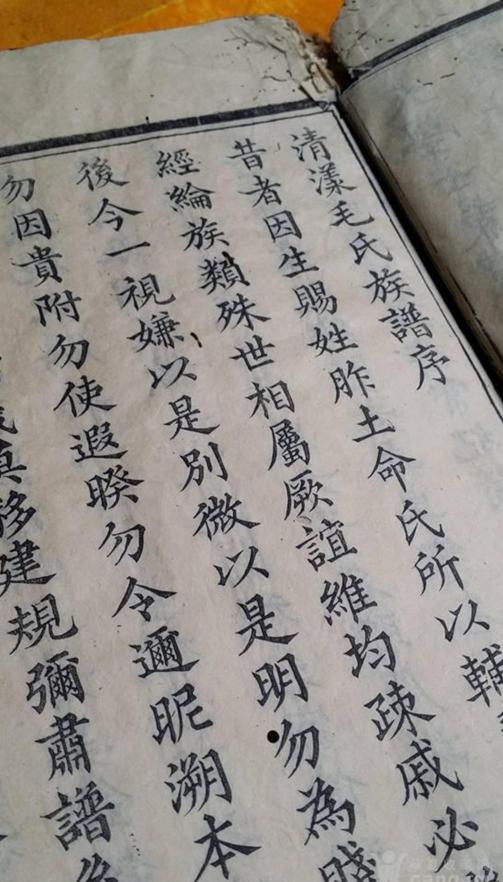 清漾毛氏族譜序
昔者因生賜姓胙土命氏所以輔
經綸族類殊世相屬厥誼維均疎戚必
後今一視嫌以是別微以是明勿為賤
勿因貴附勿使遐暌勿令邇昵溯本
移建規彌肅譜